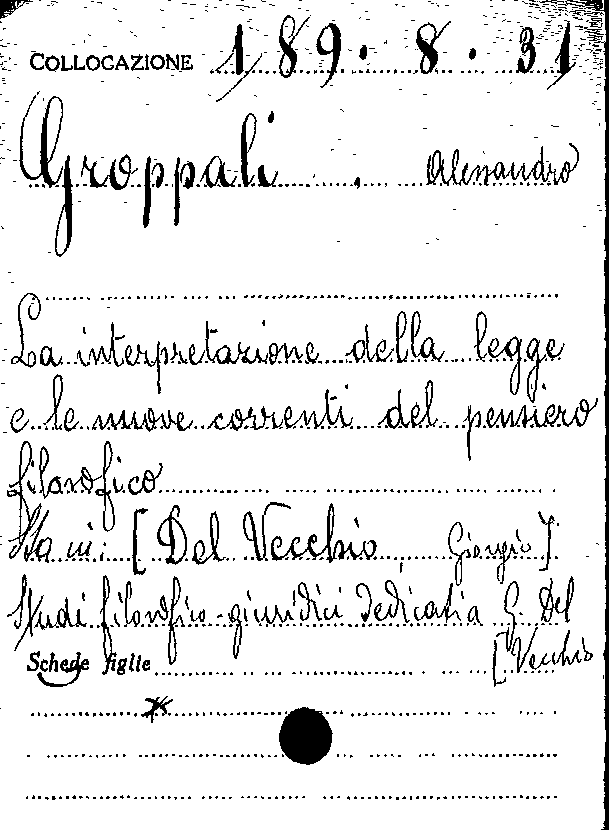 COLLOCAZIONE 189.8.31
Groppali. Alessandro
La interpretazione della legge
e le nuove correnti del pensiero
filosofico
Sta in: [Del Vecchio, Giorgio].
Studi filosofico-giuridici dedicati a G. Del
[Vecchio
Schede figlie